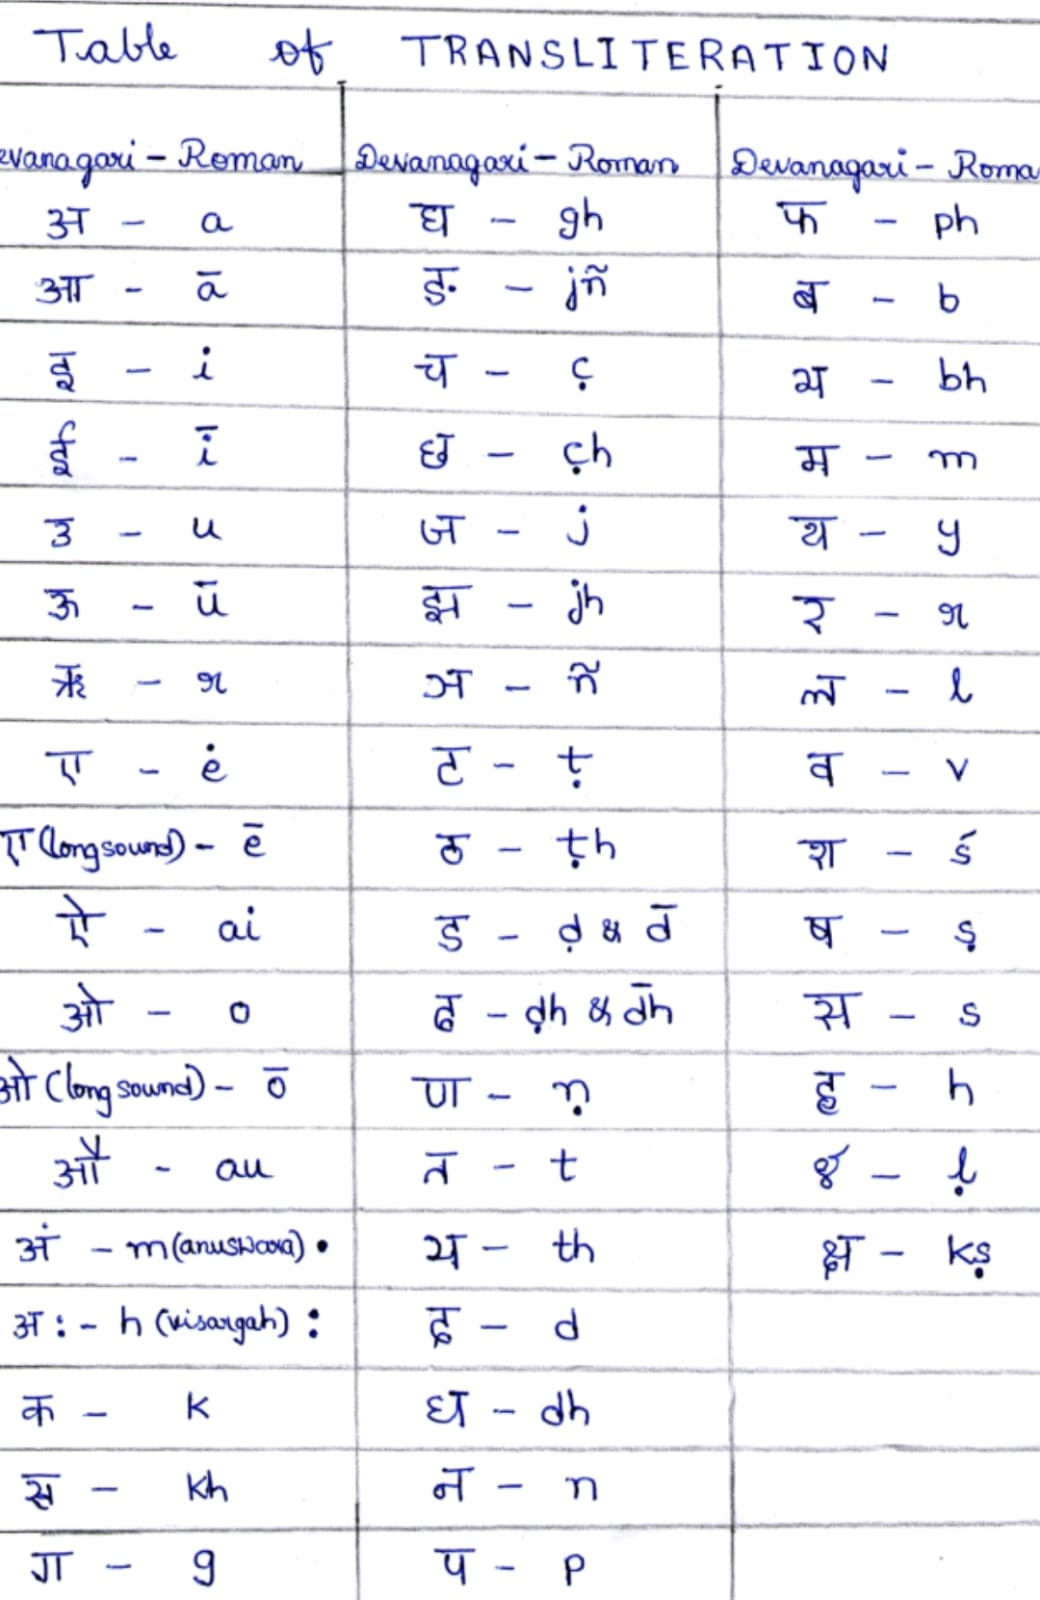 Table of TRANSLITERATION
evanagari - Roman Devanagari - Roman Devanagari - Roma
अ - a घ - gh फ - ph
आ - ā ङ - jñ ब - b
इ - i च - c̣ भ - bh
ई - ī छ - c̣h म - m
उ - u ज - j य - y
ऊ - ū झ - jh र - r
ऋ - r ञ - ñ ल - l
ए - ė ट - ṭ व - v
ए (long sound) - ē ठ - ṭh श - ś
ऐ - ai ड - ḍ & d̄ ष - ṣ
ओ - o ढ - ḍh & d̄h स - s
ओ (long sound) - ō ण - ṇ ह - h
औ - au त - t ळ - ḷ
अं - m (anuswara) • थ - th क्ष - kṣ
अः - h (visargah) : द - d
क - k ध - dh
ख - kh न - n
ग - g प - p